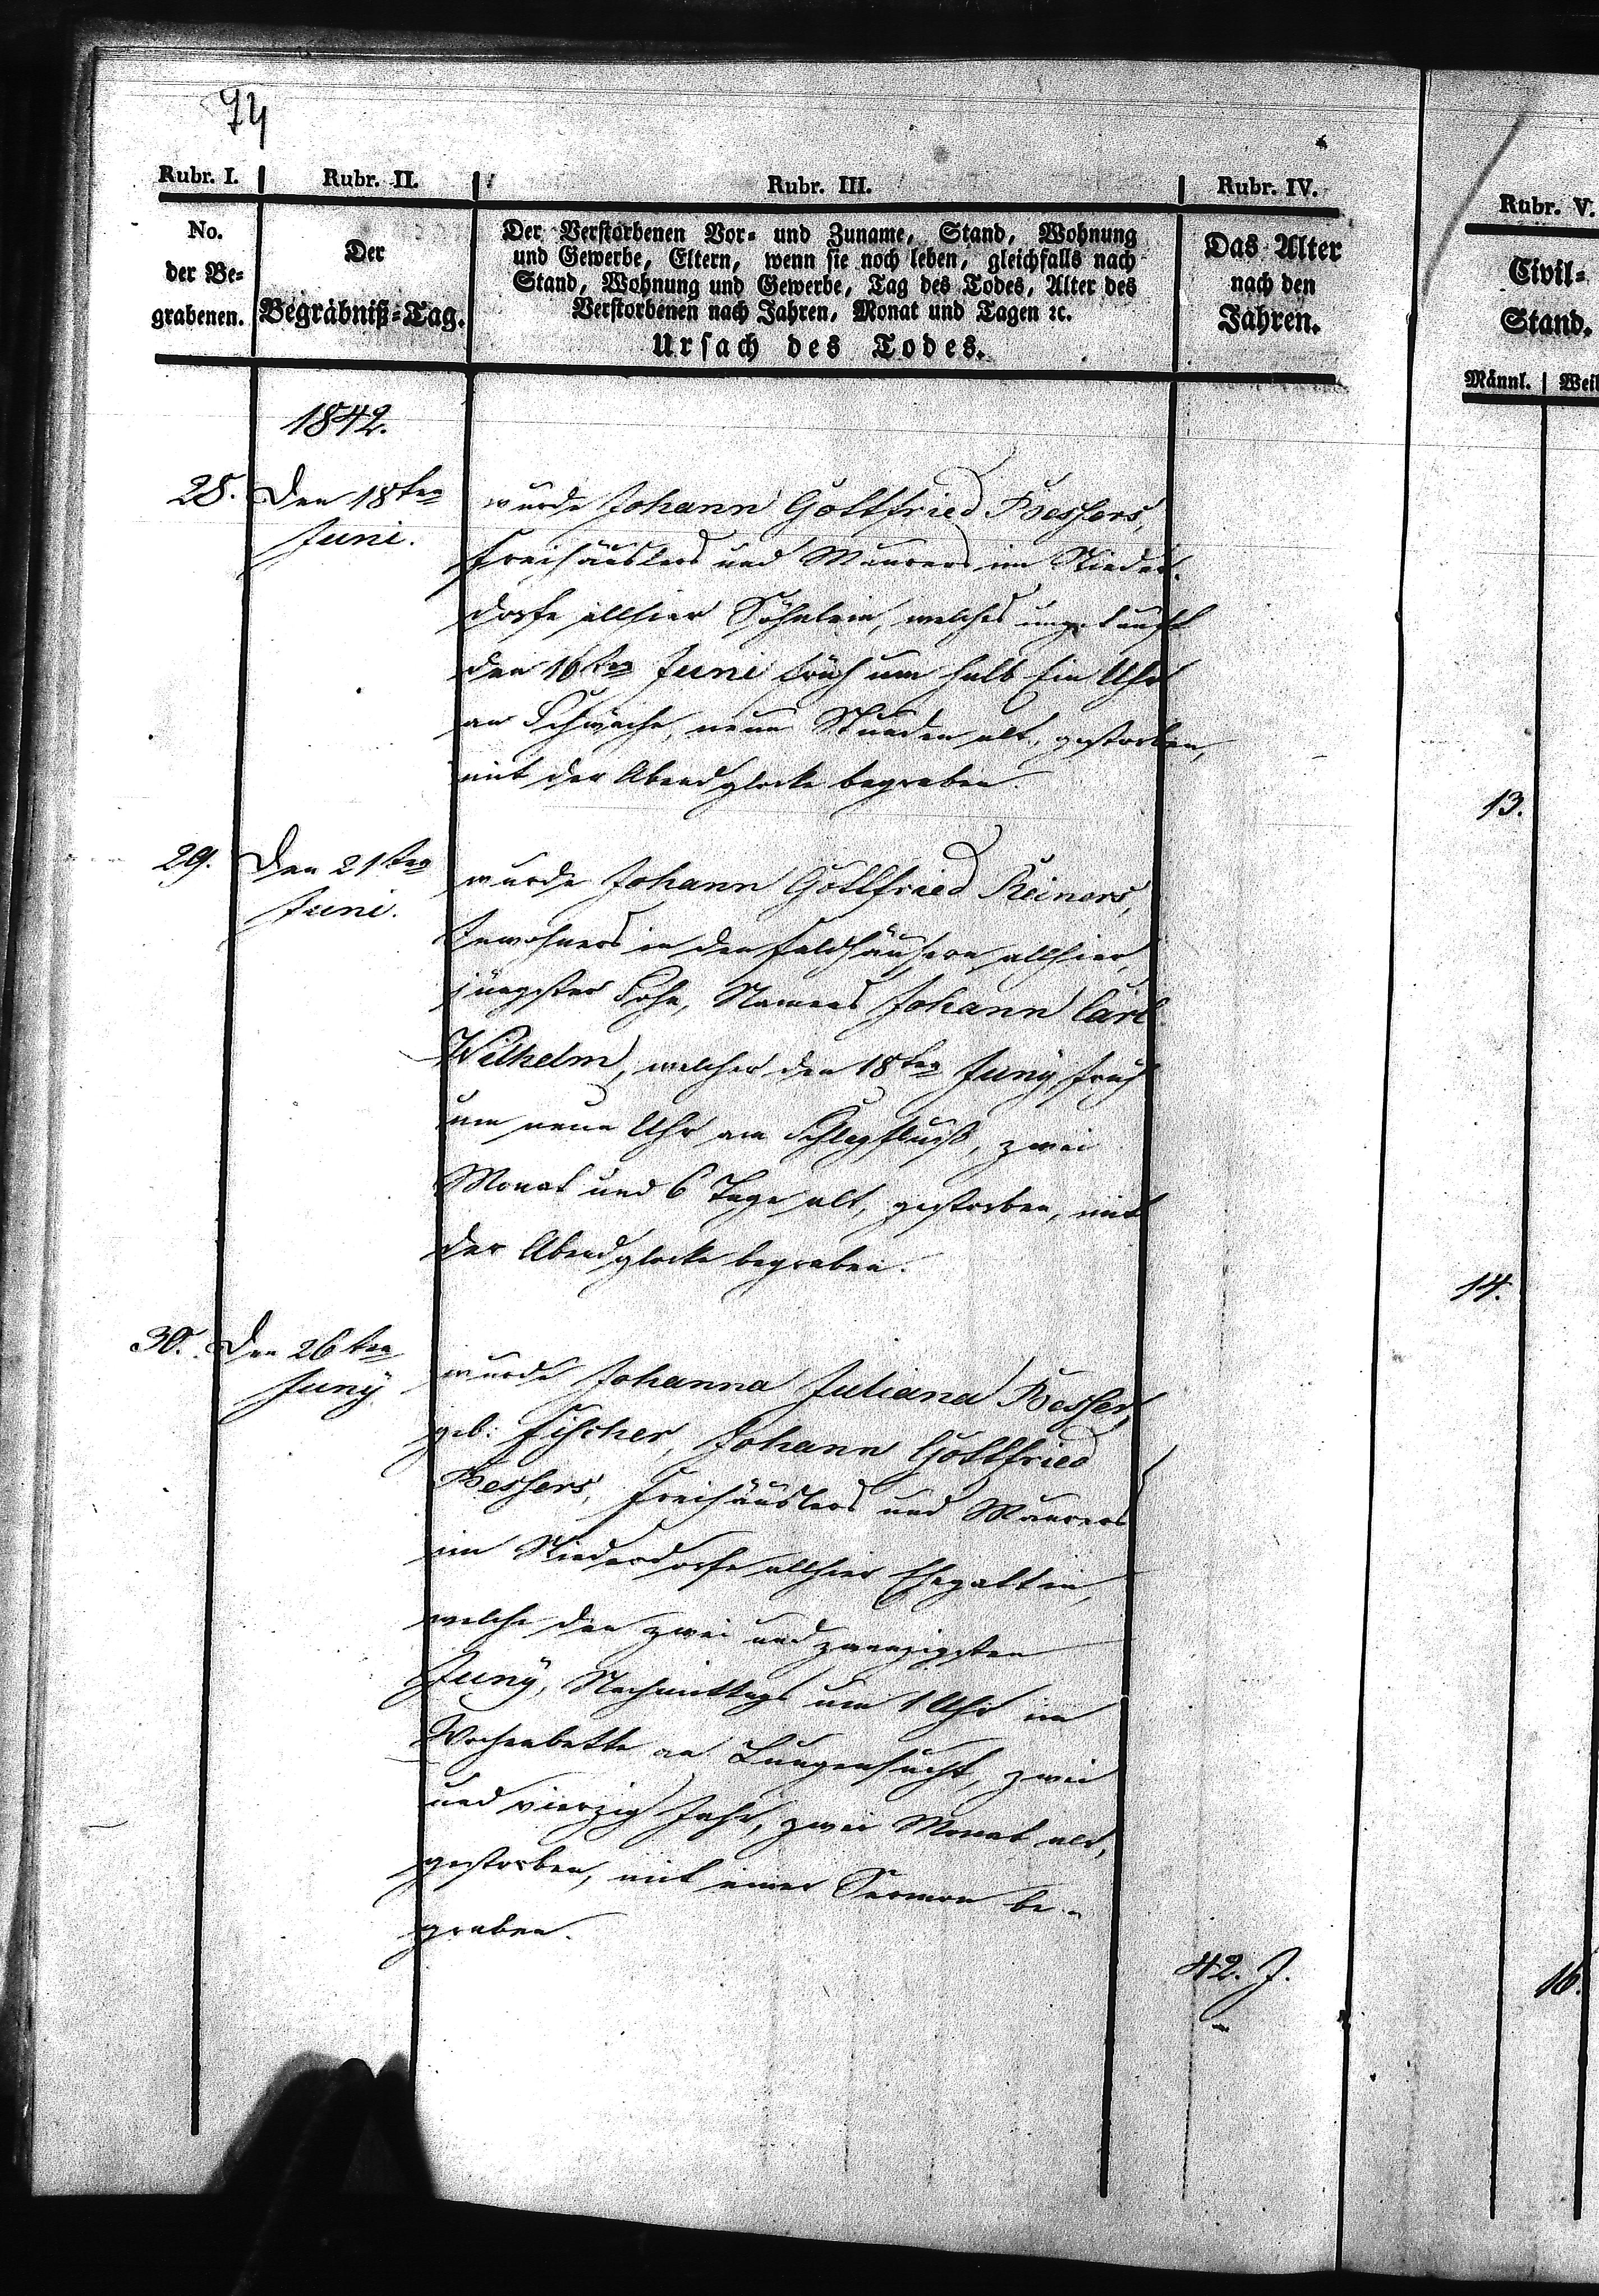 74
Rubr. I. Rubr. II. Rubr. III. Rubr. IV. Rubr. V.
No. der Be- grabenen.
Der Begräbniß-Tag.
Der Verstorbenen Vor- und Zuname, Stand, Wohnung
und Gewerbe, Eltern, wenn sie noch leben, gleichfalls nach
Stand, Wohnung und Gewerbe, Tag des Todes, Alter des
Verstorbenen nach Jahren, Monat und Tagen ꝛc.
Ursach des Todes.
Das Alter
nach den
Jahren.
Civil-
Stand.
Männl. Weil
1842.
28. Den 18ten
Juni.
wurde Johann Gottfried Bessers,
Freihäuslers und Maurers im Nieder-
dorfe allhier Söhnlein, welches ungetauft
den 16ten Juni früh um halb Ein Uhr
an Schwäche, neun Stunden alt, gestorben,
mit der Abendglocke begraben.
13.
29. Den 21ten
Juni.
wurde Johann Gottfried Reiners,
Inwohners in den Feldhäusern allhier,
jüngster Sohn, Namens Johann Carl
Wilhelm, welcher den 18ten Juny früh
um neun Uhr am Schlagfluß, zwei
Monat und 6 Tage alt, gestorben, mit
der Abendglocke begraben.
14.
30. Den 26ten
Juny
wurde Johanna Juliana Besser,
geb. Fischer, Johann Gottfried
Bessers, Freihäuslers und Maurers
im Niederdorfe allhier Ehegattin,
welche den zwei und zwanzigsten
Juny, Nachmittags um 1 Uhr im
Wochenbette an Lungensucht, zwei
und vierzig Jahr, zwei Monat alt,
gestorben, mit einer Sermon be-
graben.
42. J.
16.